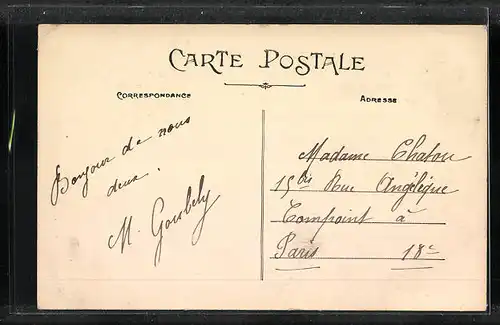 CARTE POSTALE
CORRESPONDANCE
ADRESSE
Bonjour de nous
deux.
M. Gombely
Madame Chatou
15 bis Rue Angélique
Compoint à
Paris 18e